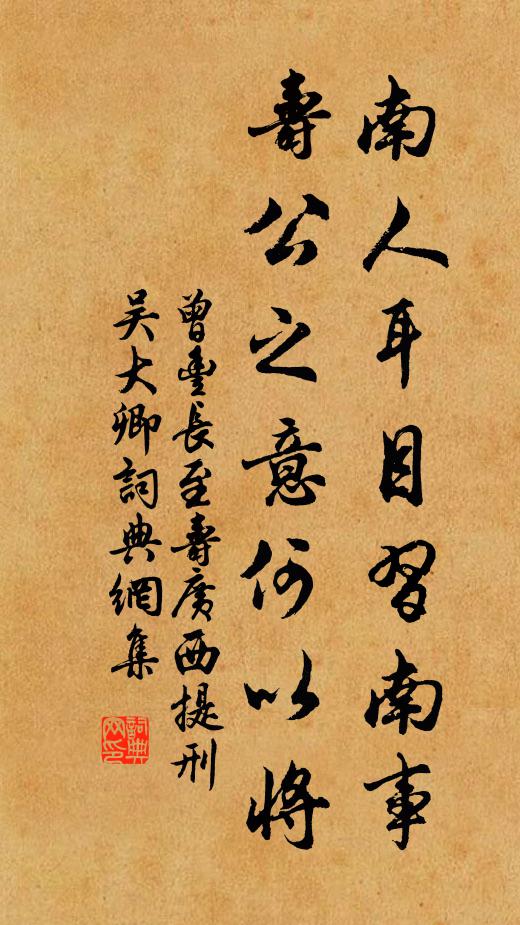 南人耳目習南事
壽公之意何以將
曾豐長至壽廣西提刑
吴大卿詞典網集
詞典
网印